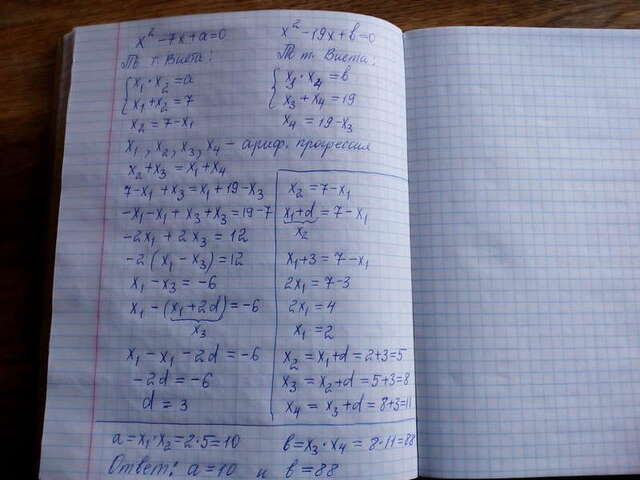 x² - 7x + a = 0
По т. Виета:
{ x₁ · x₂ = a
x₁ + x₂ = 7
x₂ = 7 - x₁
x² - 19x + b = 0
По т. Виета:
{ x₃ · x₄ = b
x₃ + x₄ = 19
x₄ = 19 - x₃
x₁, x₂, x₃, x₄ - ариф. прогрессия
x₂ + x₃ = x₁ + x₄
7 - x₁ + x₃ = x₁ + 19 - x₃
-x₁ - x₁ + x₃ + x₃ = 19 - 7
-2x₁ + 2x₃ = 12
-2(x₁ - x₃) = 12
x₁ - x₃ = -6
x₁ - (x₁ + 2d) = -6
x₃
x₁ - x₁ - 2d = -6
-2d = -6
d = 3
x₂ = 7 - x₁
x₁ + d = 7 - x₁
x₂
x₁ + 3 = 7 - x₁
2x₁ = 7 - 3
2x₁ = 4
x₁ = 2
x₂ = x₁ + d = 2 + 3 = 5
x₃ = x₂ + d = 5 + 3 = 8
x₄ = x₃ + d = 8 + 3 = 11
a = x₁ · x₂ = 2 · 5 = 10
b = x₃ · x₄ = 8 · 11 = 88
Ответ: a = 10 и b = 88